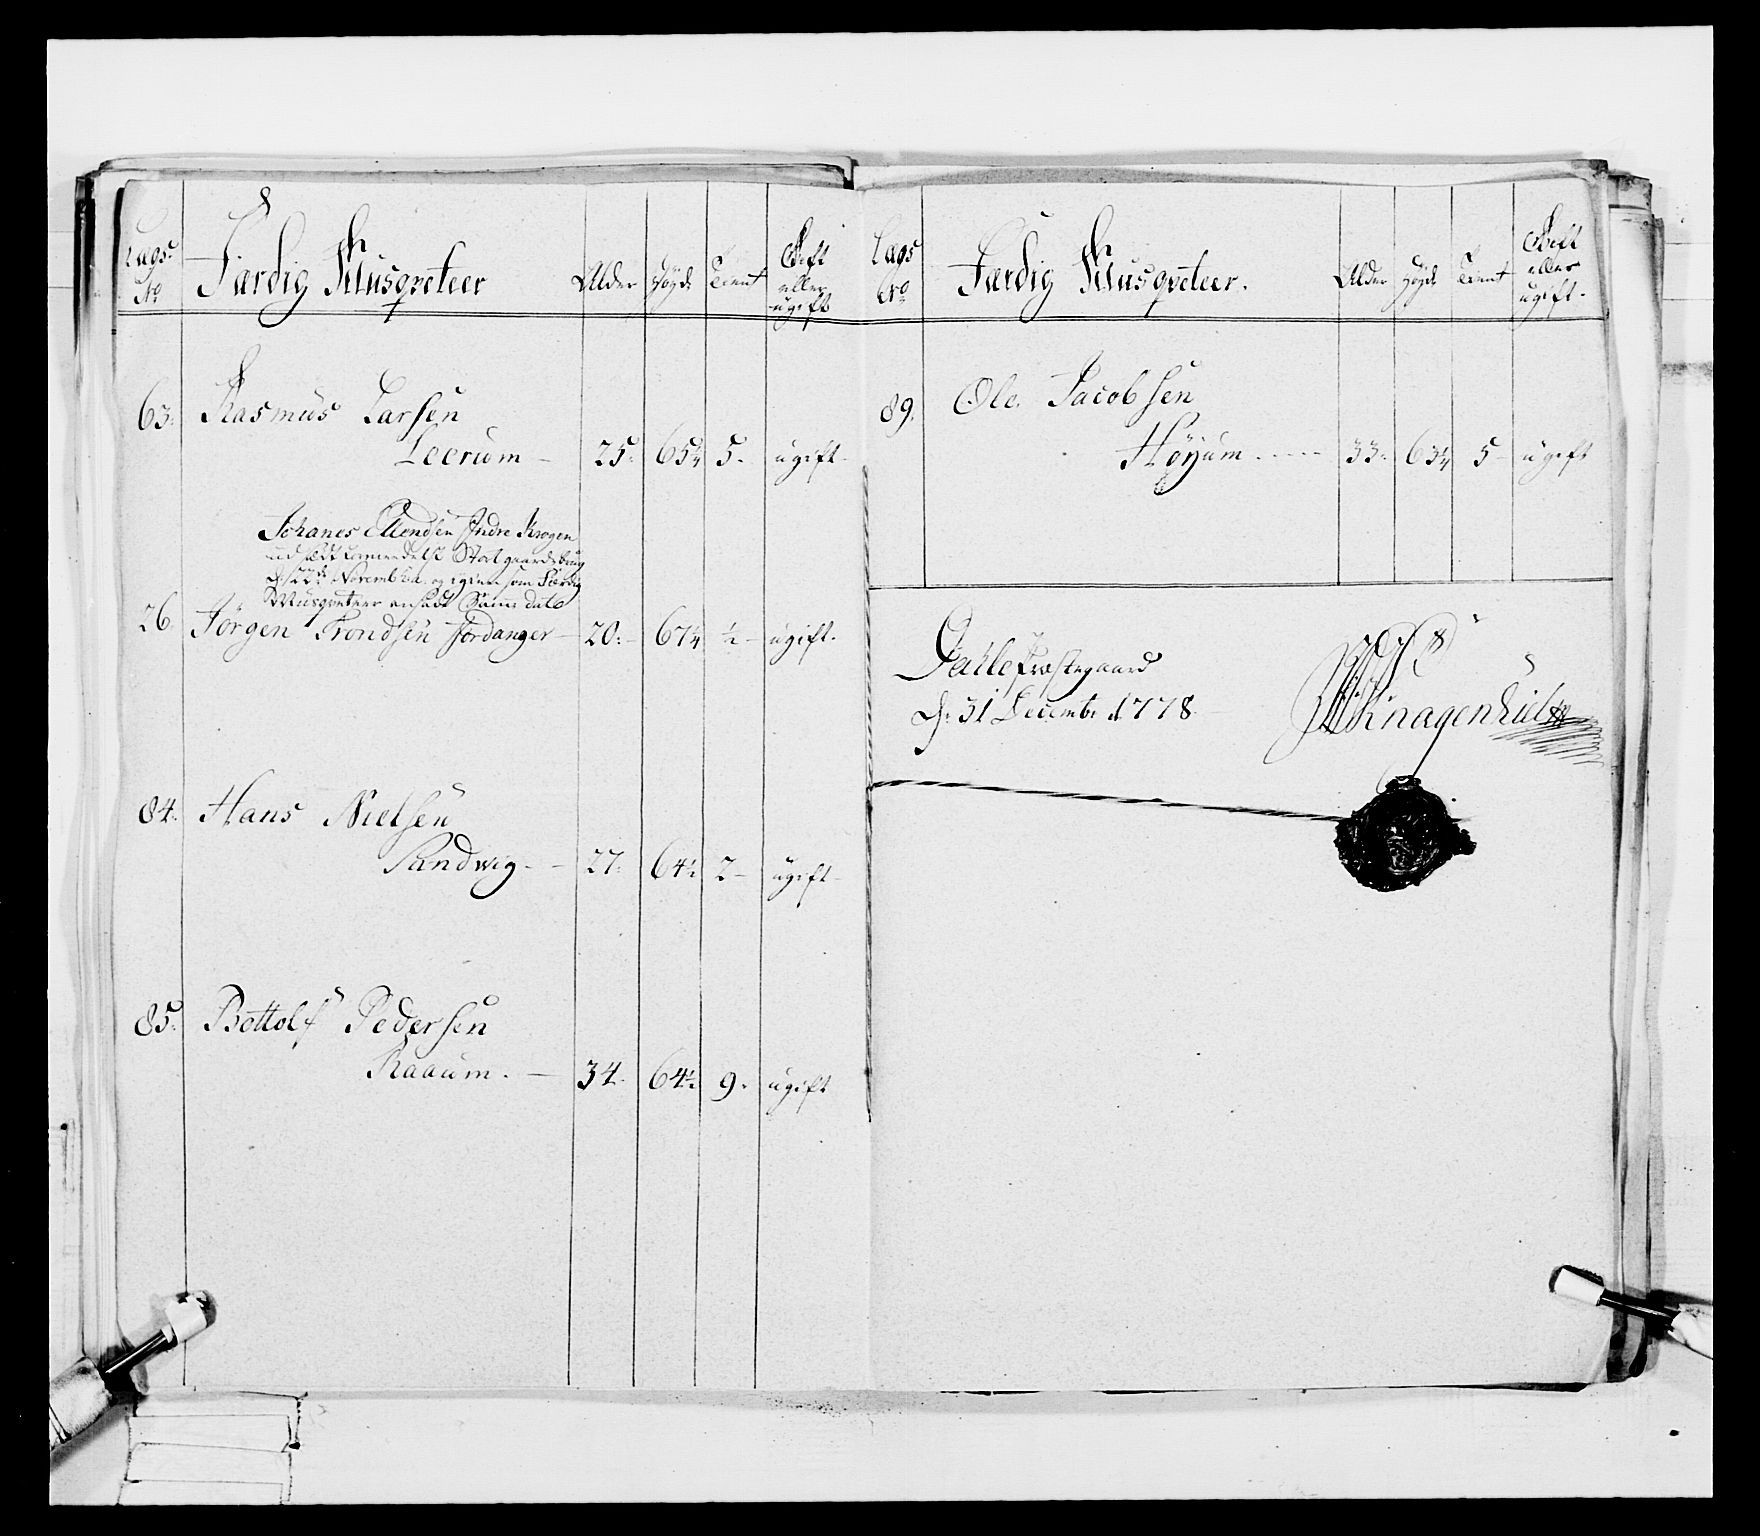 Lags No
Færdig Musqveteer
Alder Höyde Tient Gift eller ugift
63. Rasmus Larsen
Leerum - 25. 65¾ 5. ugift.
Johanes Ellendsen Indre Krogen
Stort gaardsbrug
d: 22de November og igien som Færdig
Musqveteer ansadt Samme dato
26. Jörgen Trondsen Jordanger - 20. 67¼ ½ ugift.
84. Hans Nielsen
Sandwig - 27. 64½ 2 - ugift
85. Bottolf Pedersen
Raaum. - 34. 64½ 9. ugift
Lags No
Færdig Musqveteer.
Alder Höyde Tient Gift eller ugift.
89. Ole Jacobsen
Höyum 33. 63¼ 5 - ugift
Dahle Præstegaard
d: 31 Decembr 1778.
Knagenhielm